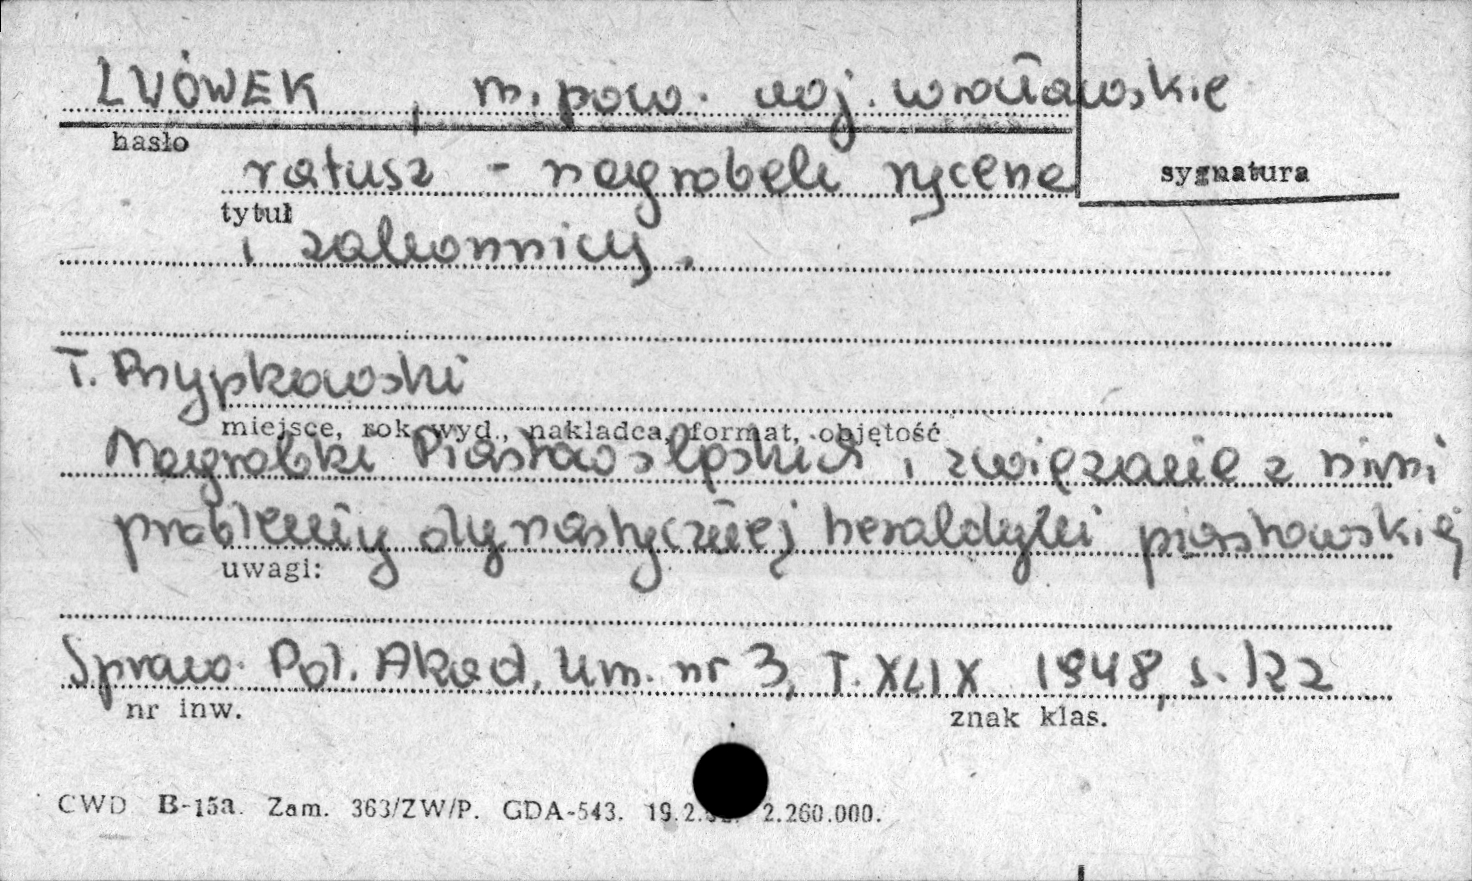 LWÓWEK, m. pow. woj. wrocławskie
hasło
sygnatura
ratusz - nagrobek rycerza
tytuł
i zakonnicy.
T. Przypkowski
miejsce, rok wyd., nakładca, format, objętość
Nagrobki Piastów śląskich i związanie z nimi
problemy dynastycznej heraldyki piastowskiej
uwagi:
Spraw. Pol. Akad. Um. nr 3, T. XLIX 1948, s. 122
nr inw.
znak klas.
CWD B-15a. Zam. 363/ZW/P. GDA-543. 19.2. 2.260.000.